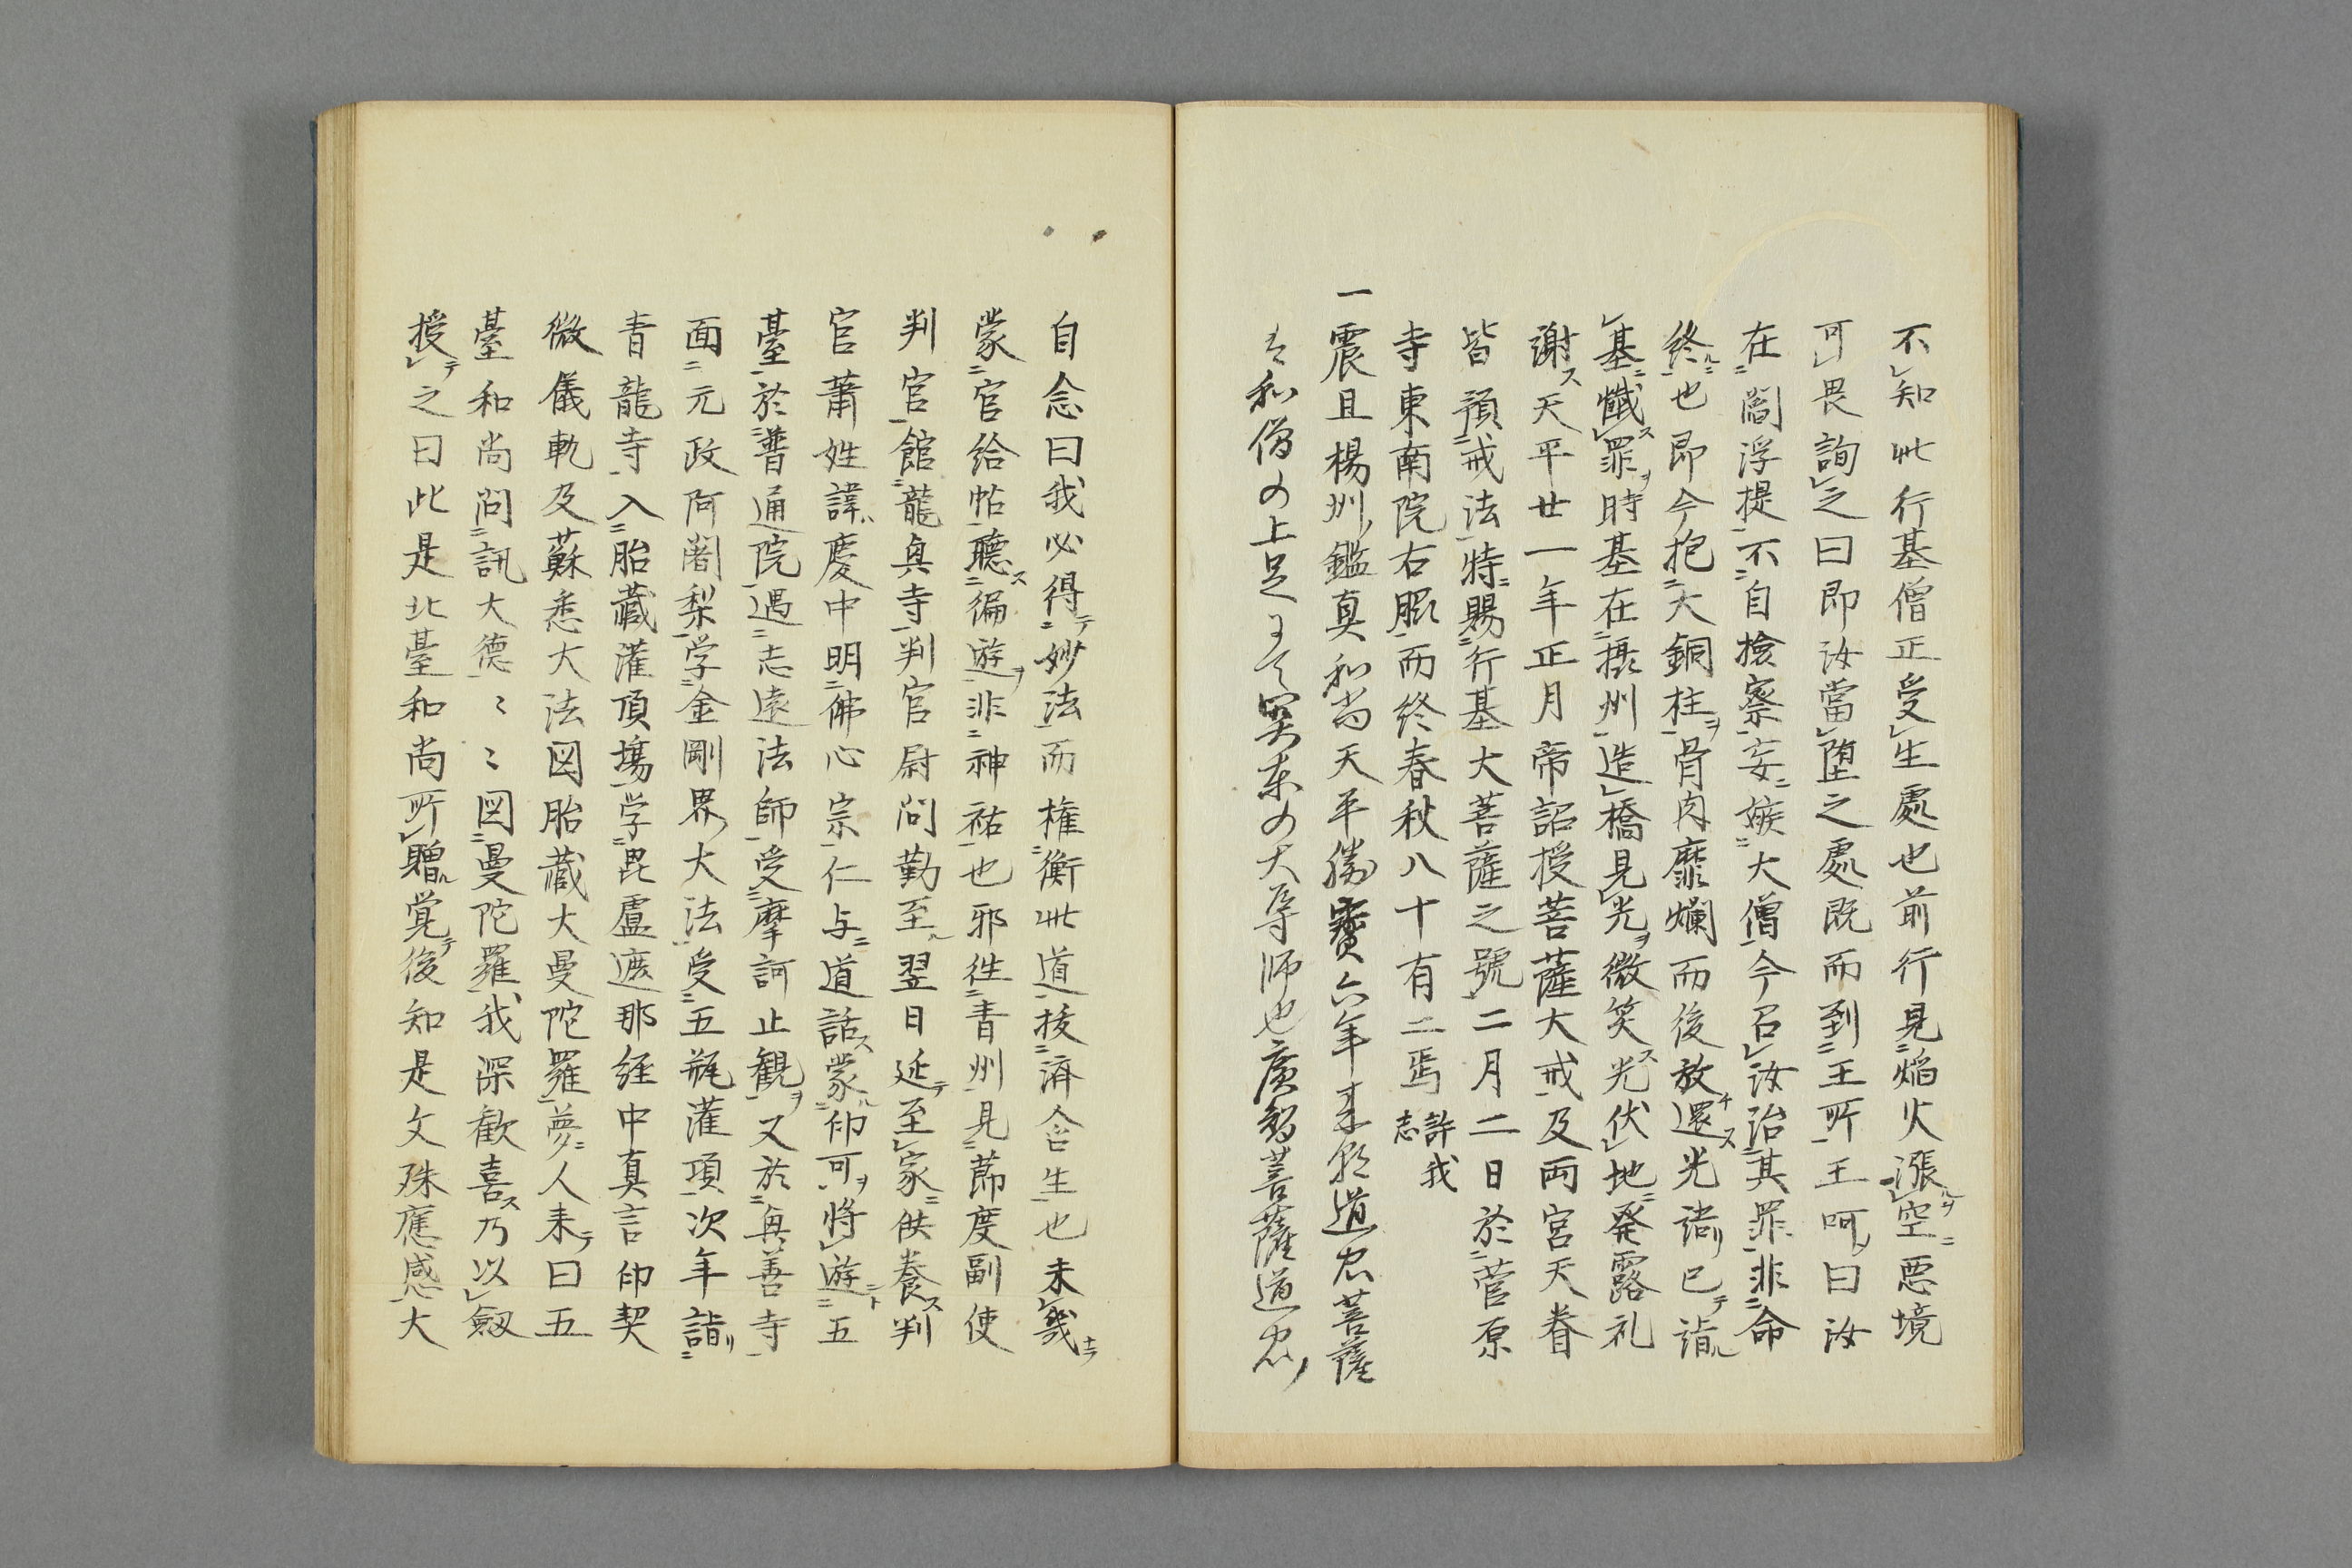 不知此行基僧正受生處也前行見焔火漲空悪境
可畏詢之曰即汝當堕之處既而到王所王呵曰汝
在閻浮提不自撿察妄嫉大僧今召汝治其罪非命
終也即今抱大銅柱骨肉靡爛而後放還光諾已詣
基懺罪時基在摂州造橋見光微笑光伏地発露礼
謝ス天平廿一年正月帝詔授菩薩大戒及両宮天眷
皆預戒法特賜行基大菩薩之號二月二日於菅原
寺東南院右脇而終春秋八十有二焉 許我志
一震旦楊州鑑真和尚天平勝寶六年来朝道忠菩薩
は和僧の上足
の大導師也廣智菩薩道忠
自念曰我必得妙法而権衡此道抜済含生也未幾
蒙官給帖聴徧遊非神祐也邪徃青州見節度副使
判官館龍興寺判官尉問勤至翌日延至家供養ス判
官蕭姓諱慶中明佛心宗仁与道話ス蒙印可将遊五
臺於普通院遇志遠法師受摩訶止観又於興善寺
面元政阿闍梨学金剛界大法受五瓶灌頂次年詣
青龍寺入胎蔵灌頂場学毘盧遮那経中真言印契
微儀軌及蘇悉大法図胎蔵大曼陀羅夢人来曰五
臺和尚問訊大德〻〻図曼陀羅我深歓喜ス乃以劔
授之曰此是北臺和尚所贈覚後知是文殊應感大